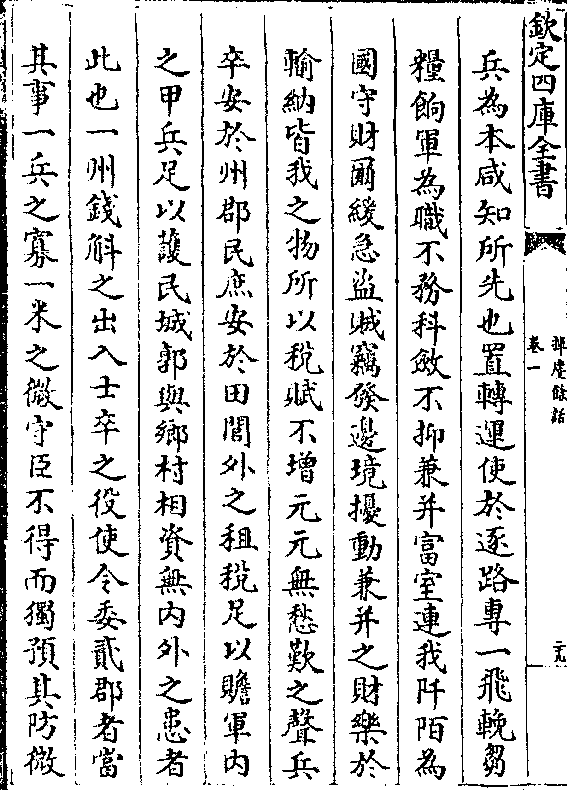 欽定四庫全書
揮麈餘話
卷一
二九
兵為本咸知所先也置轉運使於逐路專一飛輓芻
糧餉軍為職不務科斂不抑兼并富室連我阡陌為
國守財爾緩急盜賊竊發邊境擾動兼并之財樂於
輸納皆我之物所以稅賦不增元元無愁歎之聲兵
卒安於州郡民庶安於田閭外之租稅足以贍軍內
之甲兵足以護民城郭與鄉村相資無內外之患者
此也一州錢斛之出入士卒之役使令委貳郡者當
其事一兵之寡一米之微守臣不得而獨預其防微